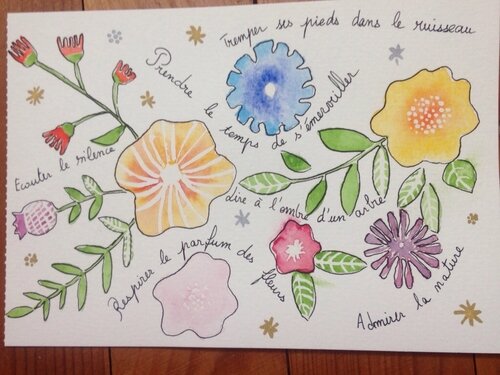 Tremper ses pieds dans le ruisseau
Prendre le temps de s'émerveiller
Ecouter le silence
lire à l'ombre d'un arbre
Respirer le parfum des fleurs
Admirer la nature